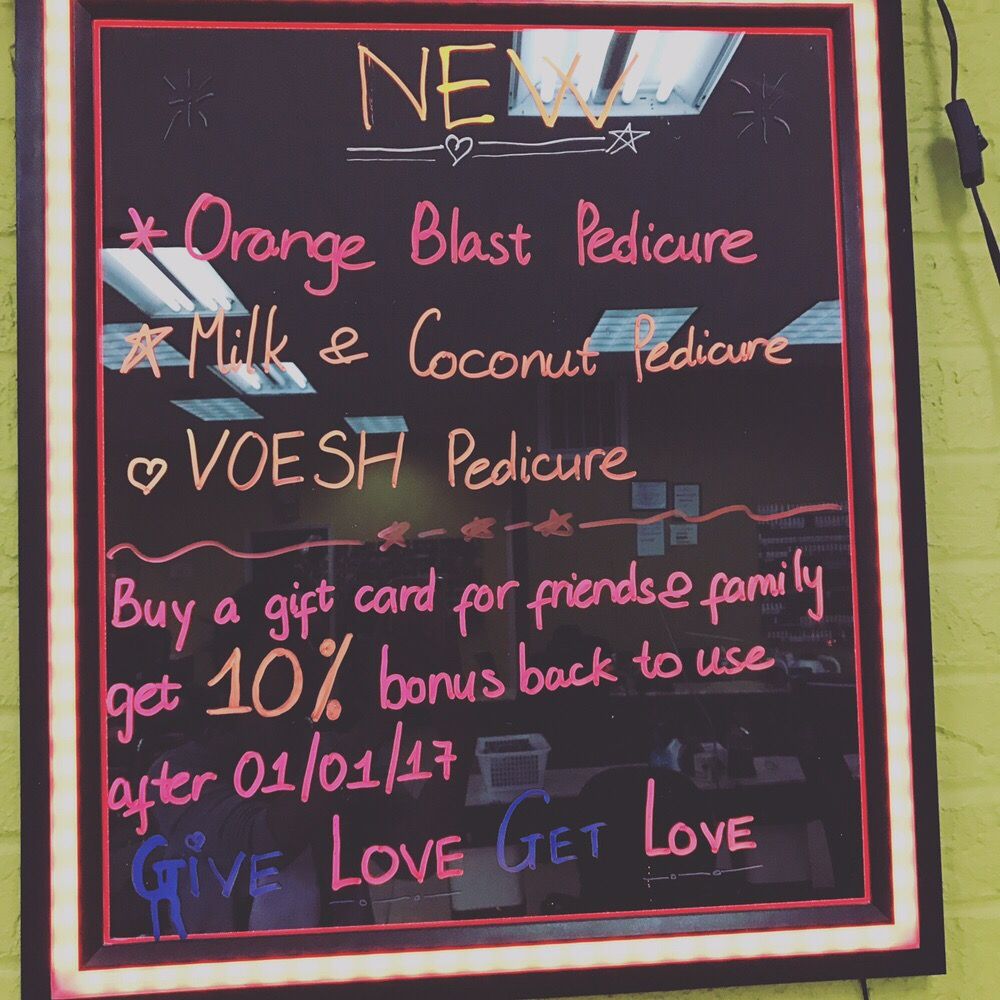 NEW
* Orange Blast Pedicure
☆ Milk & Coconut Pedicure
♡ VOESH Pedicure
Buy a gift card for friends & family
get 10% bonus back to use
after 01/01/17
GiVE LOVE GET LOVE